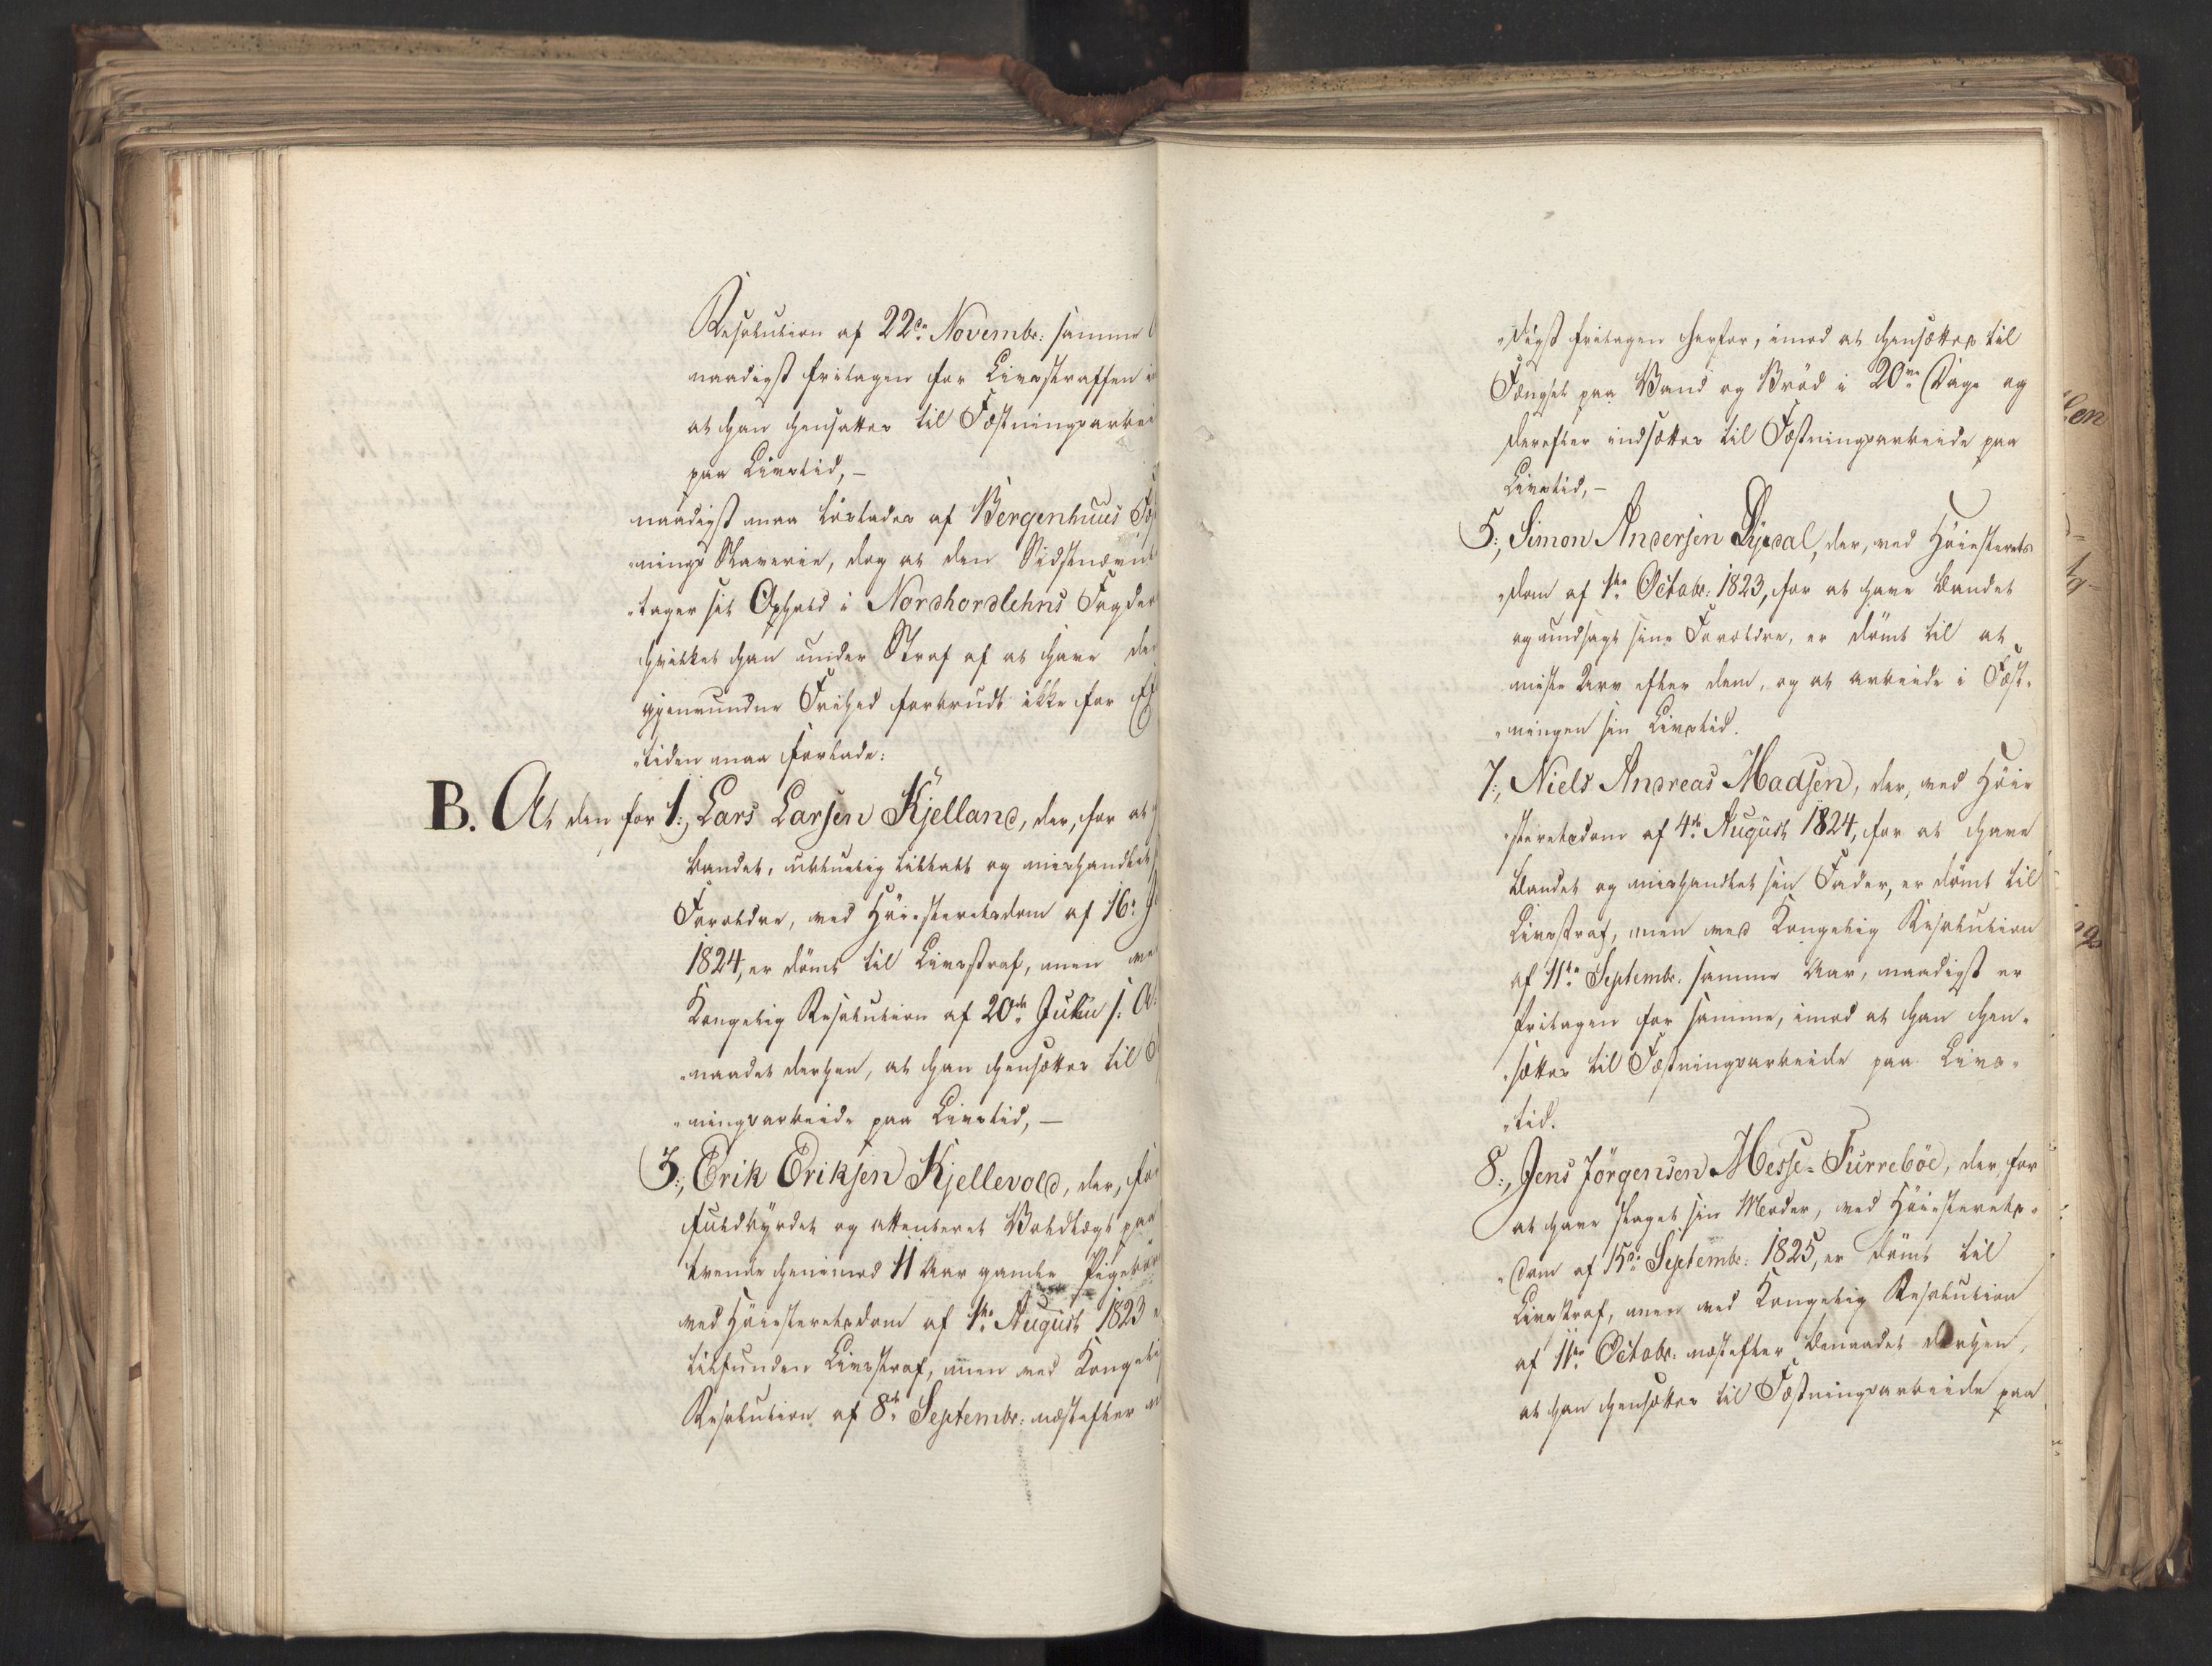 Resolution af 22de Novembr: samme
naadigst fritagen for Livsstraffen
at han hensættes til Fæstningsarbei
paa Livstid, –
naadigst maa løslades af Bergenhuus Fæst
„nings Slaverie, dog at den Sidstnævnte
„tager sit Ophold i Nordhordlehns Fogderi
hvilket han under Straf af at have den
gjenvundne Frihed forbrudt ikke for Ef
„tiden maa forlade:
B. At den for 1:, Lars Larsen Kjelland, der, for at
bandet, utilbørlig tiltalt og mishandlet
Forældre, ved Høiesteretsdom af 16de
1824, er dømt til Livsstraf, men ved
Kongelig Resolution af 20de Julii s: A:
„naadet derhen, at han hensættes til
„ningsarbeide paa Livstid, –
3:, Erik Eriksen Kjellevold, der, for
fuldbyrdet og attenteret Voldtægt paa
tvende henimod 11 Aar gamle Pigebørn
ved Høiesteretsdom af 1ste August 1823
tilfunden Livsstraf, men ved Kongelig
Resolution af 8de Septembr: næstefter
„digst fritagen herfor, imod at hensættes til
Fængsel paa Vand og Brød i 20ve Dage og
derefter indsættes til Fæstningsarbeide paa
Livstid, –
5:, Simon Andersen Dysdal, der, ved Høiesterets
„dom af 1ste Octobr: 1823, for at have bandet
og undsagt sine Forældre, er dømt til at
miste Arv efter dem, og at arbeide i Fæst-
„ningen sin Livstid.
7:, Niels Andreas Madsen, der, ved Høie
„steretsdom af 4de August 1824, for at have
bandet og mishandlet sin Fader, er dømt til
Livsstraf, men ved Kongelig Resolution
af 11te Septembr: samme Aar, naadigst er
fritagen for samme, imod at han hen-
„sættes til Fæstningsarbeide paa Livs-
„tid.
8:, Jens Jørgensen Messe-Furrebøe, der, for
at have slaget sin Moder, ved Høiesterets-
„dom af 15de Septembr: 1825, er dømt til
Livsstraf, men ved Kongelig Resolution
af 11te Octobr: næstefter benaadet derhen,
at han hensættes til Fæstningsarbeide paa